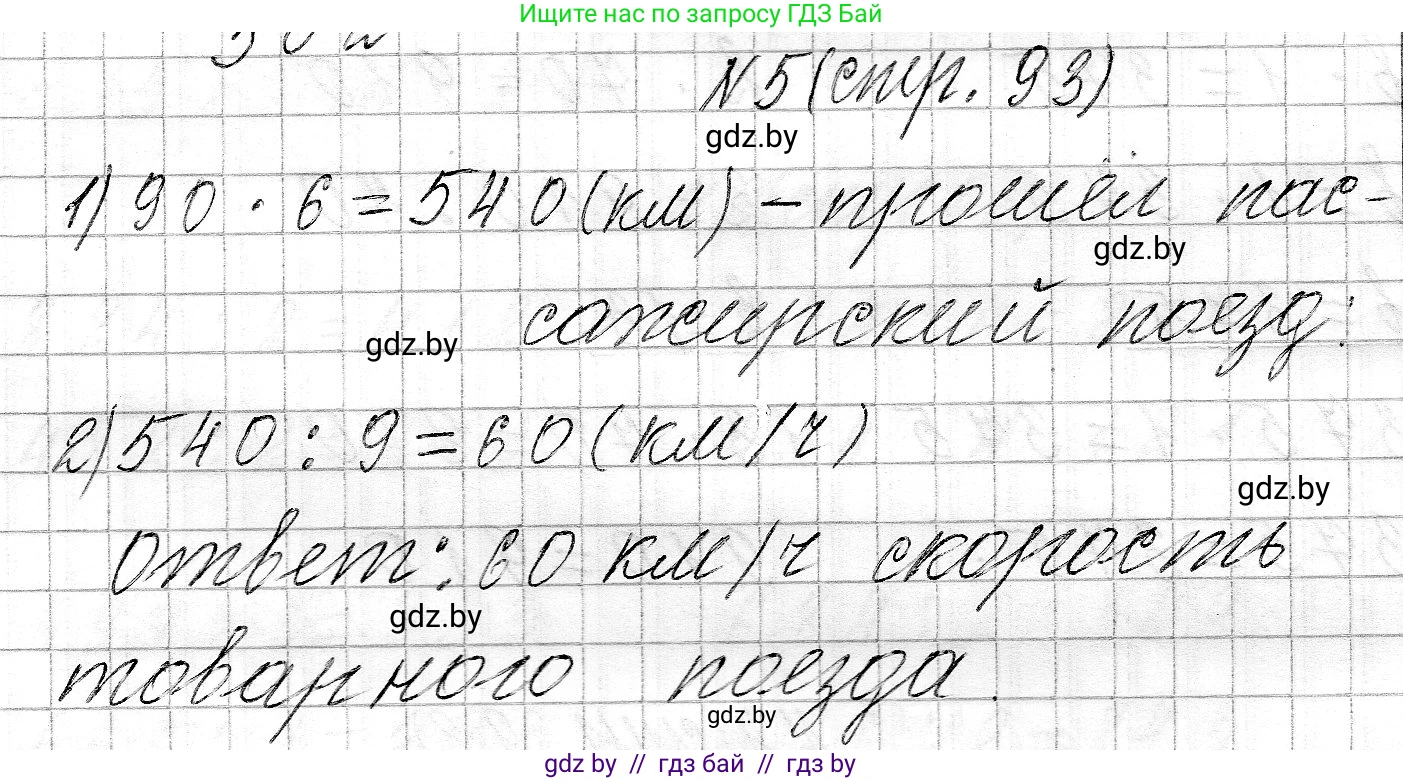 Ищите нас по запросу ГДЗ Бай
№5 (стр. 93)
gdz.by
1) 90 · 6 = 540 (км) – прошёл пас-
gdz.by
сажирский поезд.
gdz.by
2) 540 : 9 = 60 (км/ч)
gdz.by
ответ: 60 км/ч скорость
gdz.by
товарного поезда.
gdz.by
gdz by // гдз бай // гдз by